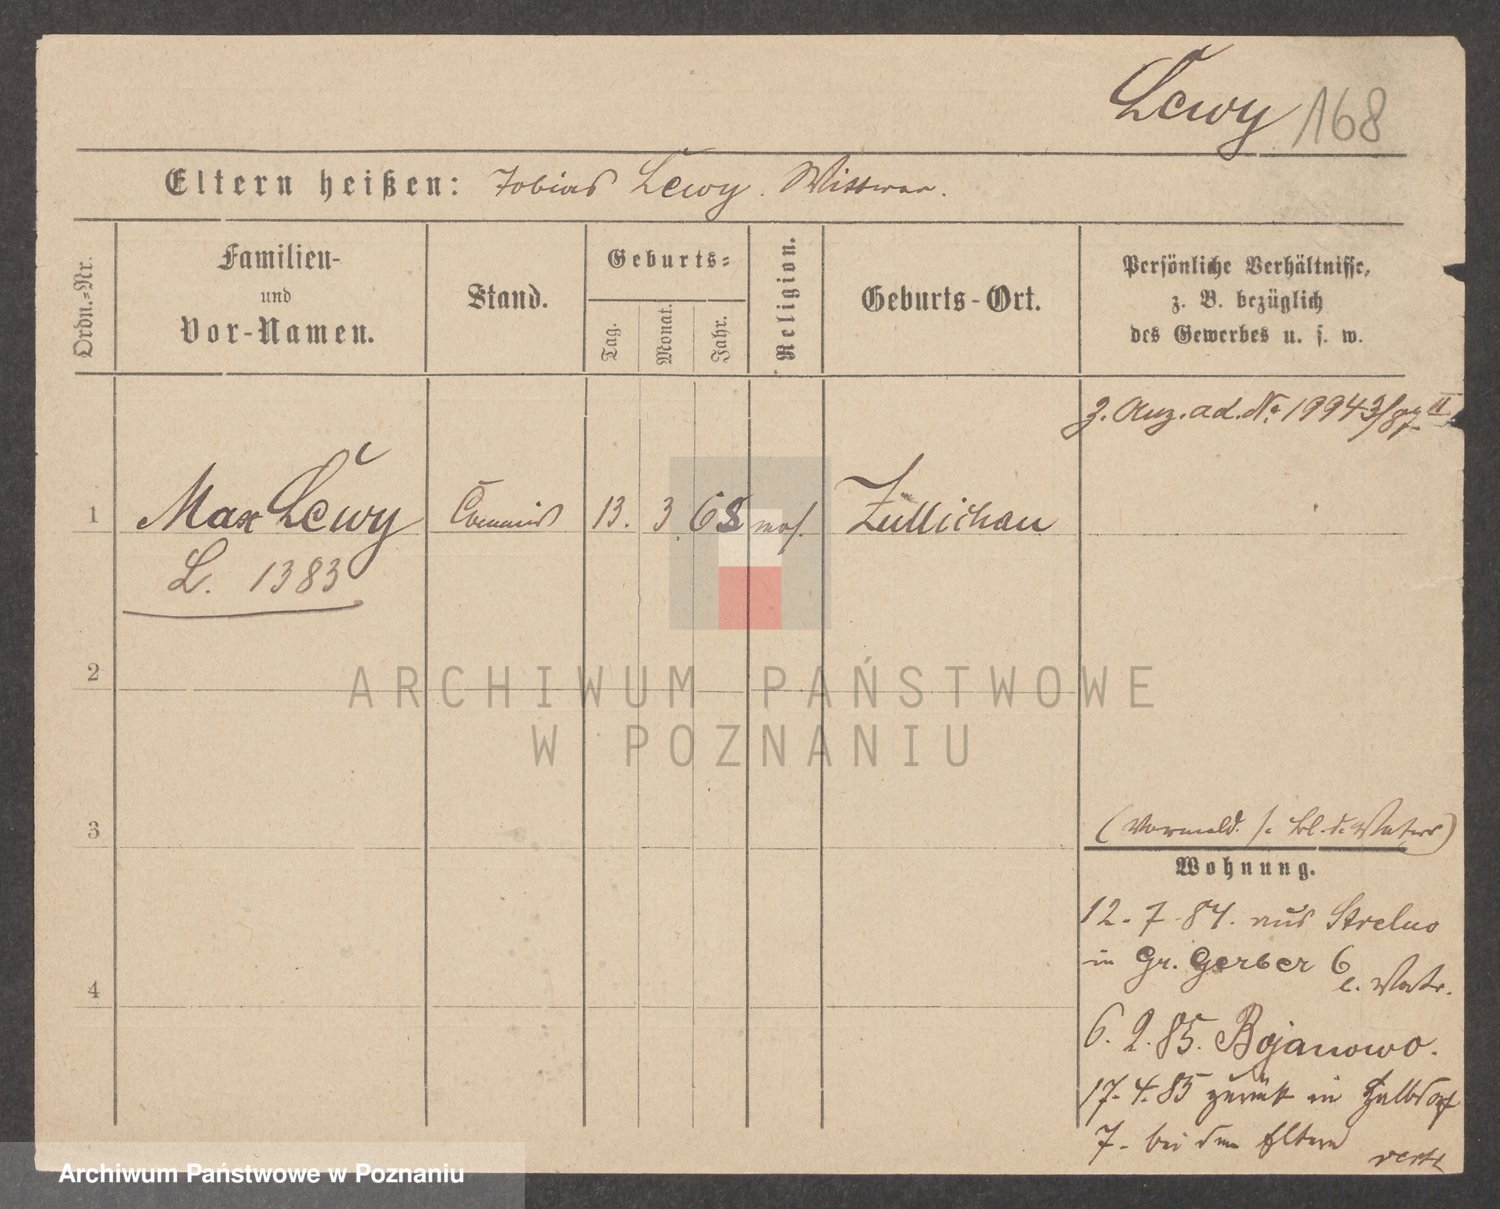 Lewy 168
Eltern heißen: Tobias Lewy. Wittwer.
Ordn.-Nr.
Familien-
und
Vor-Namen.
Stand.
Geburts-
Tag.
Monat.
Jahr.
Religion.
Geburts-Ort.
Persönliche Verhältnisse,
z. B. bezüglich
des Gewerbes u. s. w.
z. Anz. ad. No 19943/87 II
1 Max Lewy Commis 13. 3. 68 mos. Züllichau
L. 1383
2
3
4
(Vormeld. s. bl. d. Vaters)
Wohnung.
12. 7. 84. aus Strelno
in Gr. Gerber 6
b. Vatr.
6. 2. 85. Bojanowo.
17. 4. 85 zurück in Halbdorf
7. bei den Eltern
vert
ARCHIWUM PAŃSTWOWE
W POZNANIU
Archiwum Państwowe w Poznaniu